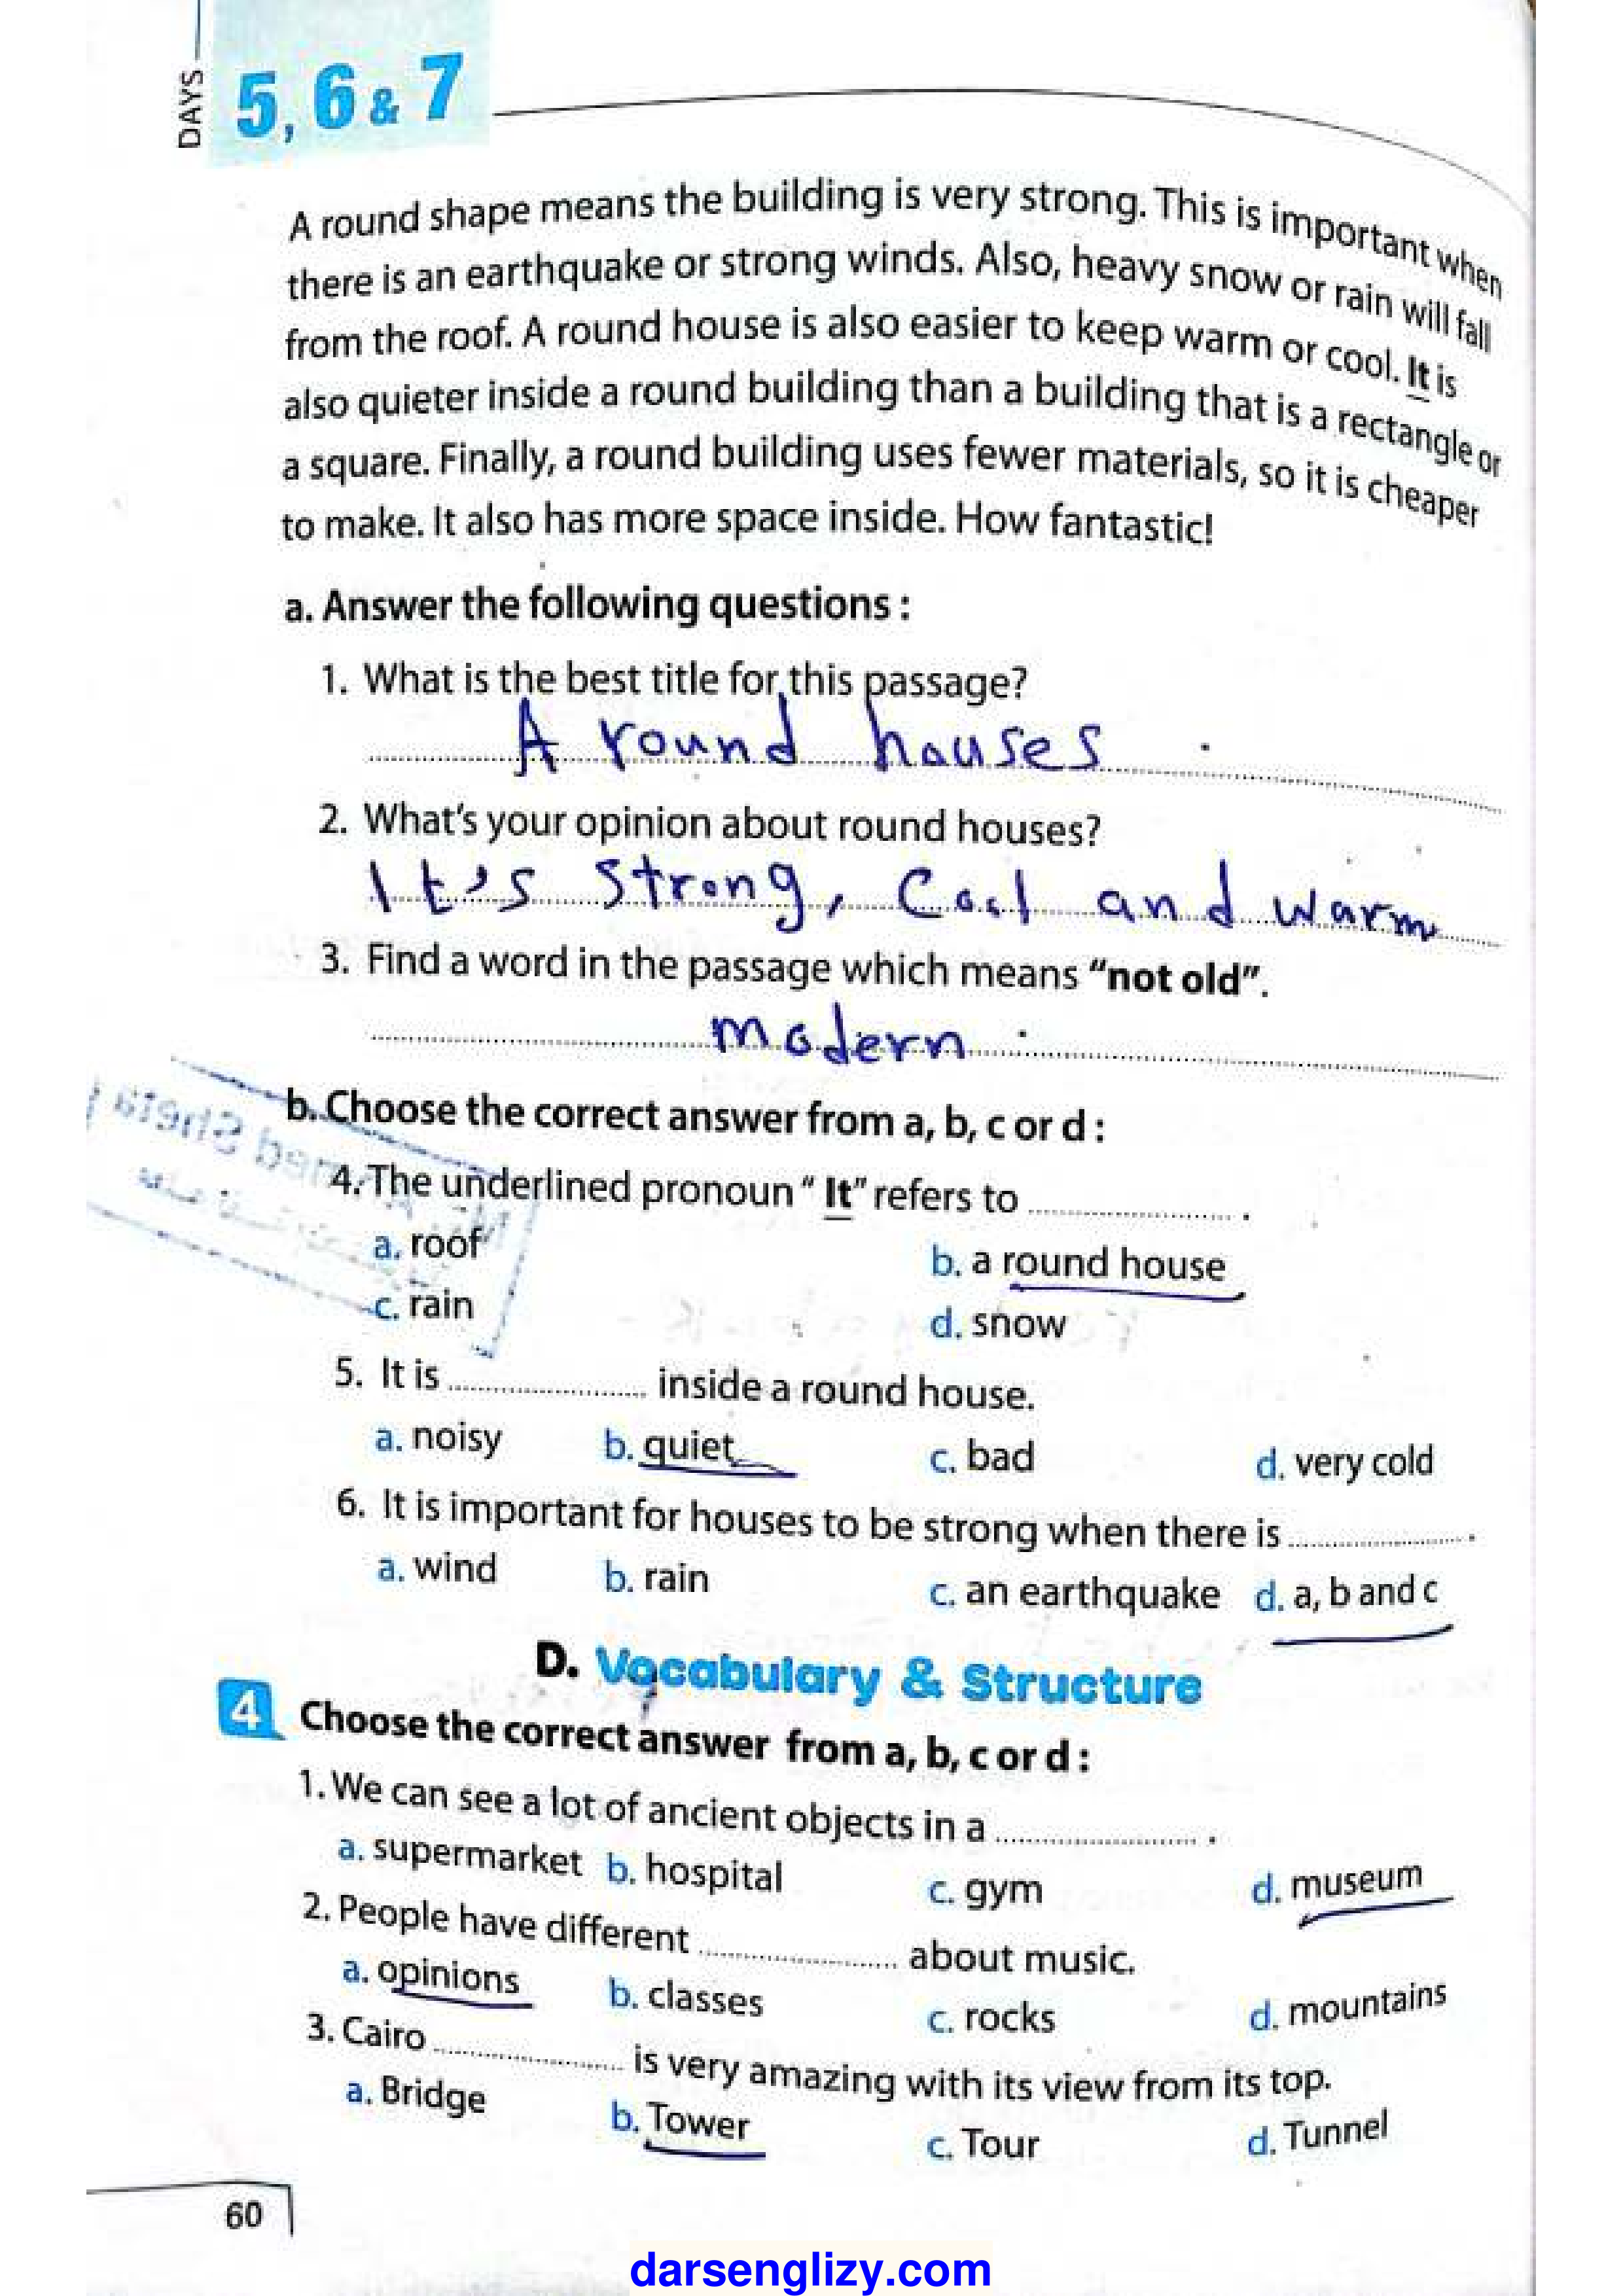 DAYS
5, 6 & 7
A round shape means the building is very strong. This is important when
there is an earthquake or strong winds. Also, heavy snow or rain will fall
from the roof. A round house is also easier to keep warm or cool. It is
also quieter inside a round building than a building that is a rectangle or
a square. Finally, a round building uses fewer materials, so it is cheaper
to make. It also has more space inside. How fantastic!
a. Answer the following questions :
1. What is the best title for this passage?
A round houses .
2. What's your opinion about round houses?
It's strong, cool and warm
3. Find a word in the passage which means "not old".
modern .
b. Choose the correct answer from a, b, c or d :
4. The underlined pronoun " It" refers to .................... .
a. roof
b. a round house
c. rain
d. snow
5. It is .................... inside a round house.
a. noisy b. quiet c. bad d. very cold
6. It is important for houses to be strong when there is .................... .
a. wind b. rain c. an earthquake d. a, b and c
D. Vocabulary & Structure
4 Choose the correct answer from a, b, c or d :
1. We can see a lot of ancient objects in a .................... .
a. supermarket b. hospital c. gym d. museum
2. People have different .................... about music.
a. opinions b. classes c. rocks d. mountains
3. Cairo .................... is very amazing with its view from its top.
a. Bridge b. Tower c. Tour d. Tunnel
60
darsenglizy.com